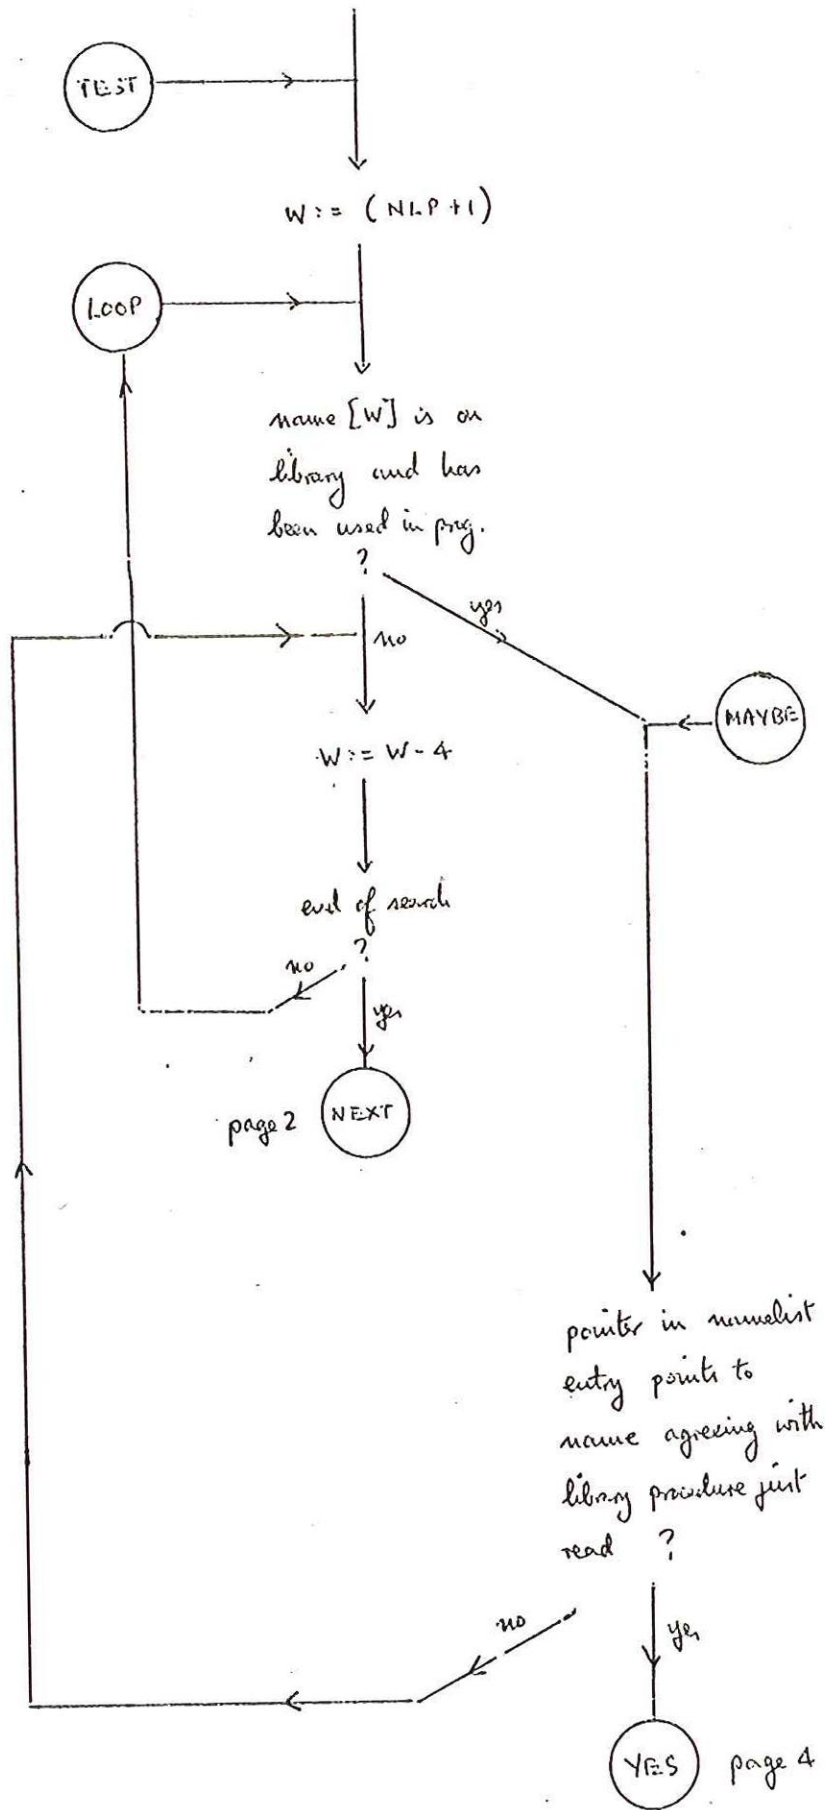 TEST
W := (NLP+1)
LOOP
name [W] is on
library and has
been used in prog.
?
yes
no
MAYBE
W := W - 4
end of search
?
no
yes
page 2
NEXT
pointer in namelist
entry points to
name agreeing with
library procedure just
read ?
no
yes
YES
page 4